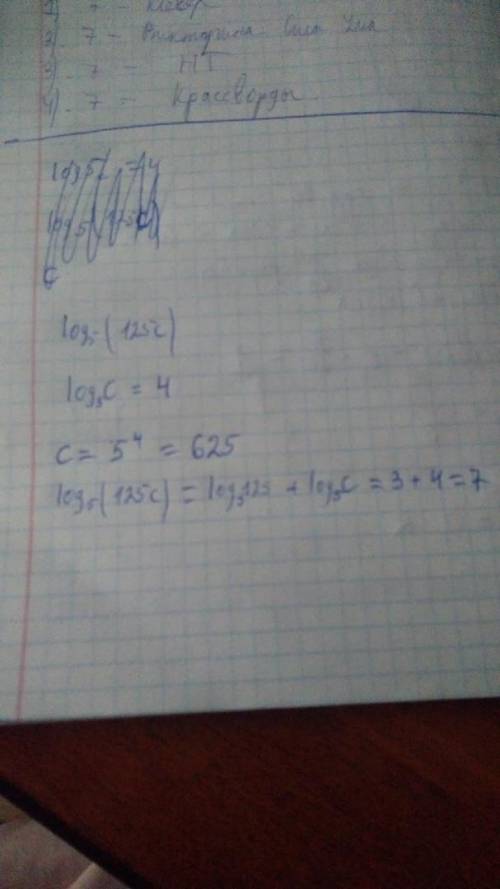 7 -
2). 7 - Викторина Сила Ума
3). 7 - НТ
4). 7 - Кроссворды
log₅(125c)
log₅c = 4
c = 5⁴ = 625
log₅(125c) = log₅125 + log₅c = 3 + 4 = 7